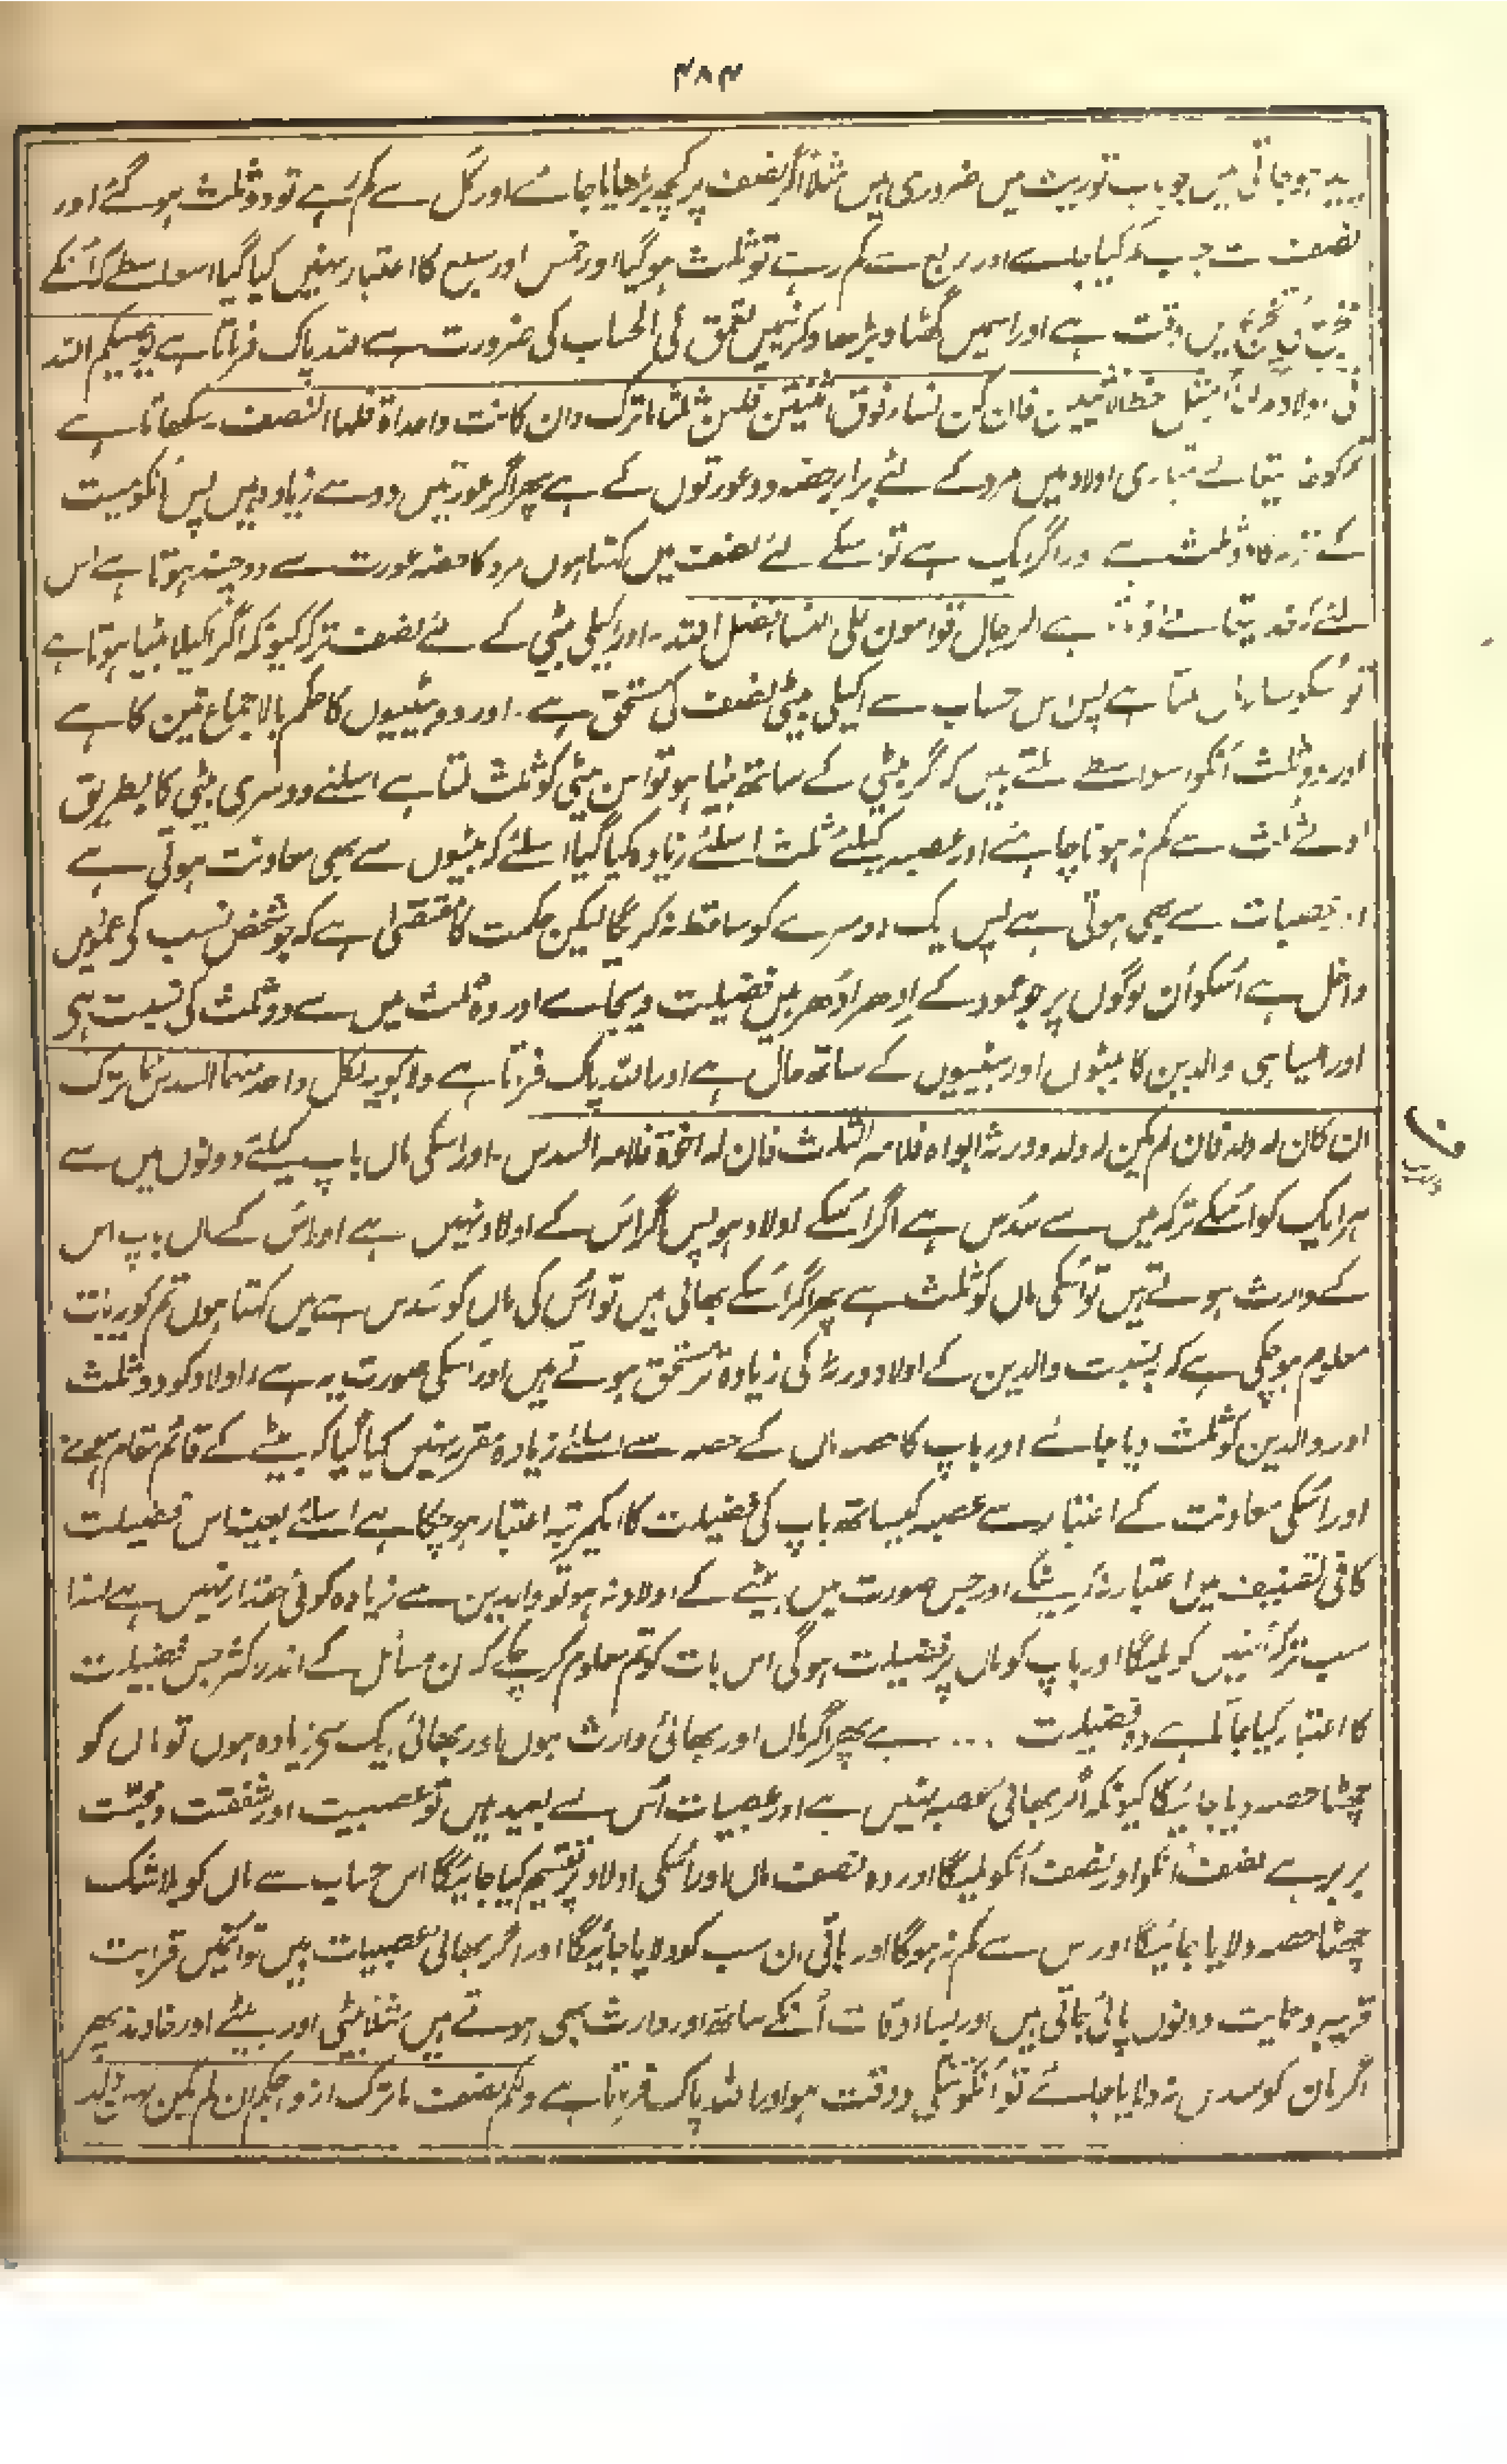 ۴۸۴
ہو جاتی ہیں جو باب توریث میں ضروری ہیں مثلاً اگر نصف پر کچھ بڑھایا جائے اور کل سے کم رہے تو دو ثلث ہو گئے اور
نصف جب کم کیا جاوے اور ربع سے کم رہے تو ثلث ہو گیا اور خمس اور سبع کا اعتبار نہیں کیا گیا اسواسطے کہ انکے
دقت ہے اور اسمیں گھٹا و بڑھا و کرنیمیں تعمق فی الحساب کی ضرورت ہے اللہ پاک فرماتا ہے یوصیکم اللہ
فی اولادکم للذکر مثل حظ الانثیین فان کن نساء فوق اثنتین فلہن ثلثا ما ترک وان کانت واحدۃ فلہا النصف۔ سکھاتا ہے
تمکو تمہاری اولاد میں مرد کے لئے برابر حصہ دو عورتوں کے ہے پھر اگر عورتیں دو سے زیادہ ہیں پس انکو میت
کے ترکہ کا دو ثلث ہے اور اگر ایک ہے تو اسکے لئے نصف میں کہتا ہوں مرد کا حصہ عورت سے دو چند ہوتا ہے اس
لئے کہ ہے الرجال قوامون علی النسا بما فضل اللہ۔ اور اکیلی بیٹی کے لئے نصف ترکہ کیونکہ اگر اکیلا بیٹا ہوتا ہے
تو اسکو سارا مال ملتا ہے پس اس حساب سے اکیلی بیٹی نصف کی مستحق ہے۔ اور دو بیٹیوں کا حکم بالاجماع تین کا ہے
اور دو ثلث انکو اسواسطے ملتے ہیں کہ اگر بیٹی کے ساتھ بیٹا ہو تو اس بیٹی کو ثلث ملتا ہے اسلئے دوسری بیٹی کا بطریق
اولے ثلث سے کم نہ ہونا چاہئے اور عصبہ کیلئے ثلث اسلئے زیادہ کیا گیا اسلئے کہ بیٹیوں سے بھی معاونت ہوتی ہے
اور عصبات سے بھی ہوتی ہے پس ایک دوسرے کو ساقط نہ کریگا لیکن حکمت کا مقتضیٰ ہے کہ جو شخص نسب کی عمود میں
داخل ہے اسکو اُن لوگوں پر جو عمود کے اِدھر اُدھر ہیں فضیلت دیجاوے اور وہ ثلث میں سے دو ثلث کی نسبت ہی
اور ایسا ہی والدین کا بیٹوں اور بیٹیوں کے ساتھ حال ہے اور اللہ پاک فرماتا ہے ولابویہ لکل واحد منہما السدس مما ترک
ان کان لہ ولد فان لم یکن لہ ولد وورثہ ابواہ فلامہ الثلث فان لہ اخوۃ فلامہ السدس۔ اور اسکی ماں باپ کیلئے دونوں میں سے
ہر ایک کو اسکے ترکہ میں سے سدس ہے اگر اسکے اولاد ہو پس اگر اس کے اولاد نہیں ہے اور اس کے ماں باپ اس
کے وارث ہوتے ہیں تو اسکی ماں کو ثلث ہے پھر اگر اسکے بھائی ہیں تو اس کی ماں کو سدس ہے میں کہتا ہوں تم کو یہ بات
معلوم ہو چکی ہے کہ بہ نسبت والدین کے اولاد ورثہ کی زیادہ تر مستحق ہوتے ہیں اور اسکی صورت یہ ہے اولاد کو دو ثلث
اور والدین کو ثلث دیا جائے اور باپ کا حصہ ماں کے حصہ سے اسلئے زیادہ مقرر نہیں کیا گیا کہ بیٹے کے قائم مقام ہونے
اور اسکی معاونت کے اعتبار سے عصبہ کیساتھ باپ کی فضیلت کا ایکمرتبہ اعتبار ہو چکا ہے اسلئے بعینہ اس فضیلت
کا فی تضعیف میں اعتبار نہ کرینگے اور جس صورت میں بیٹے کے اولاد نہ ہو تو والدین سے زیادہ کوئی حقدار نہیں ہے لہذا
سب ترکہ انہیں کو ملیگا اور باپ کو ماں پر فضیلت ہوگی اس بات کو تم معلوم کر چکے کہ ان مسائل کے اندر اکثر جس فضیلت
کا اعتبار کیا جاتا ہے وہ فضیلت ... ہے پھر اگر ماں اور بھائی وارث ہوں اور بھائی ایک سے زیادہ ہوں تو ماں کو
چھٹا حصہ دیا جائیگا کیونکہ اگر بھائی عصبہ نہیں ہے اور عصبات اس سے بعید ہیں تو عصبیت اور شفقت و محبت
برابر ہے نصف انکو اور نصف انکو ملیگا اور وہ نصف ماں اور اسکی اولاد پر تقسیم کیا جائیگا اس حساب سے ماں کو بلا شک
چھٹا حصہ دلایا جائیگا اور اس سے کم نہ ہوگا اور باقی ان سب کو دلایا جائیگا اور اگر بھائی عصبات ہیں تو انمیں قرابت
قریبہ و حمایت دونوں پائی جاتی ہیں اور بسا اوقات اُنکے ساتھ اور وارث بھی ہوتے ہیں مثلاً بیٹی اور بیٹے اور خاوند پھر
اگر ماں کو سدس نہ دلایا جائے تو انکو تنگی و دقت ہو اور اللہ پاک فرماتا ہے ولکم نصف ما ترک ازواجکم ان لم یکن لہن ولد